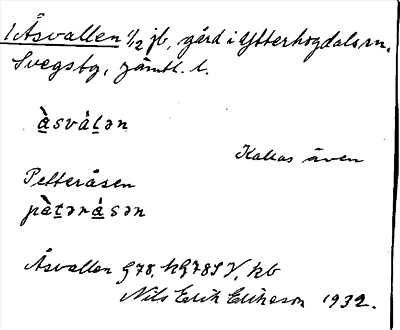 1 Åsvallen 1/2 jb, gård i Ytterhogdals sn,
Svegs tg, Jämtl. l.
å̀svàḷən
Kallas även
Petteråsen
pæ̀tərå̀sən
Åsvallen G78, hG78SV, hb
Nils Erik Eriksson 1932.